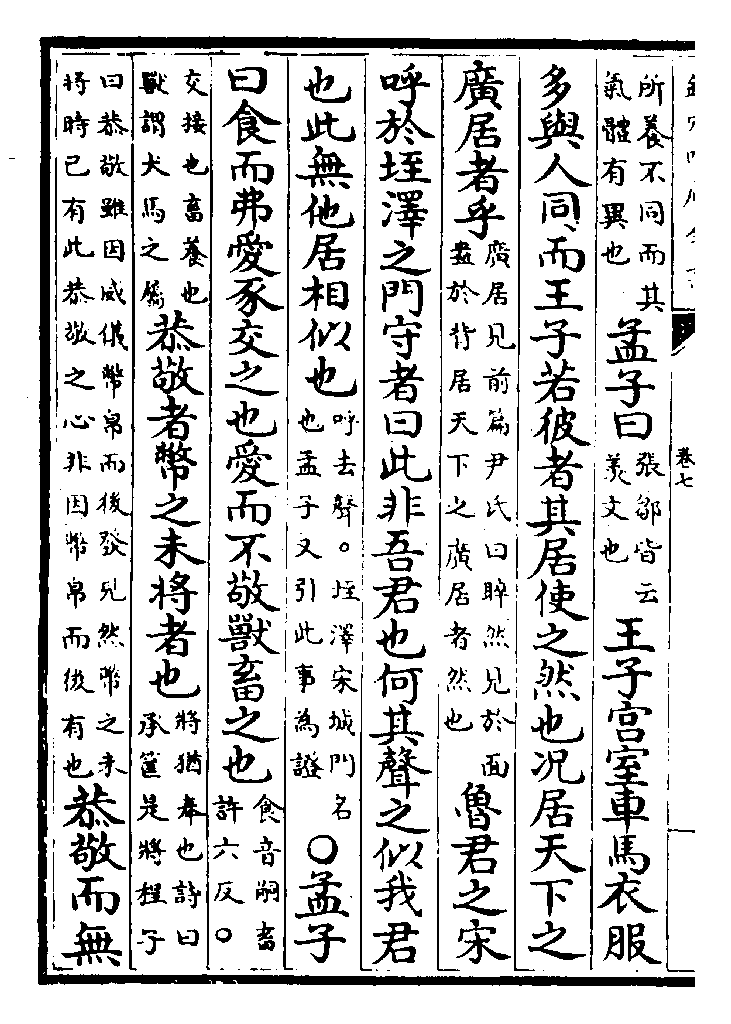 卷七
所養不同而其氣體有異也孟子曰張鄒皆云羨文也王子宮室車馬衣服
多與人同、而王子若彼者其居使之然也况居天下之
廣居者乎廣居見前篇尹氏曰睟然見於面盎於背居天下之廣居者然也魯君之宋
呼於垤澤之門守者曰此非吾君也何其聲之似我君
也此無他居相似也呼去聲。垤澤宋城門名也孟子又引此事為證○孟子
曰食而弗愛豕交之也愛而不敬獸畜之也食音嗣畜許六反○
交接也畜養也獸謂犬馬之屬恭敬者幣之未將者也將猶奉也詩曰承筐是將程子
曰恭敬雖因威儀幣帛而後發見然幣之未將時已有此恭敬之心非因幣帛而後有也恭敬而無